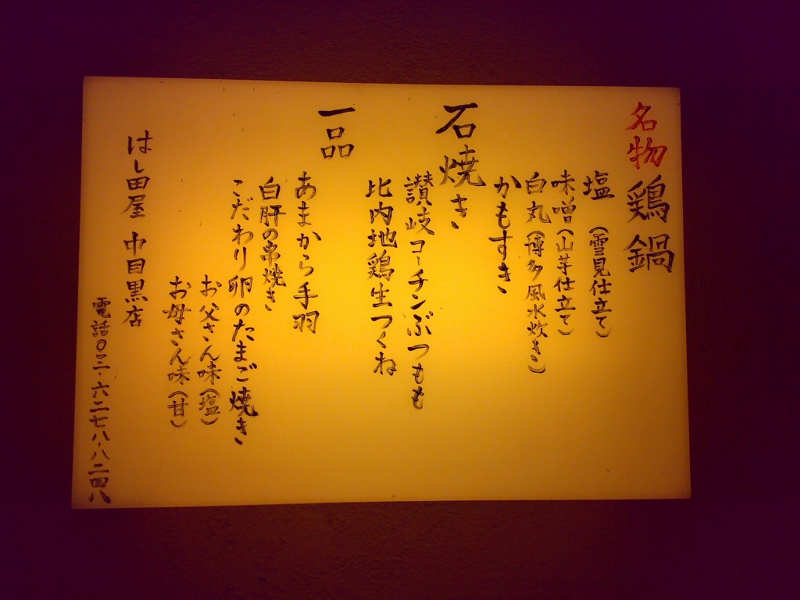 名物 鶏鍋
塩(雪見仕立て)
味噌(山芋仕立て)
白丸(博多風水炊き)
かもすき
石焼き
讃岐コーチンぶつもも
比内地鶏生つくね
一品
あまから手羽
白肝の串焼き
こだわり卵のたまご焼き
お父さん味(塩)
お母さん味(甘)
はし田屋 中目黒店
電話〇三-六二七八-八二四八